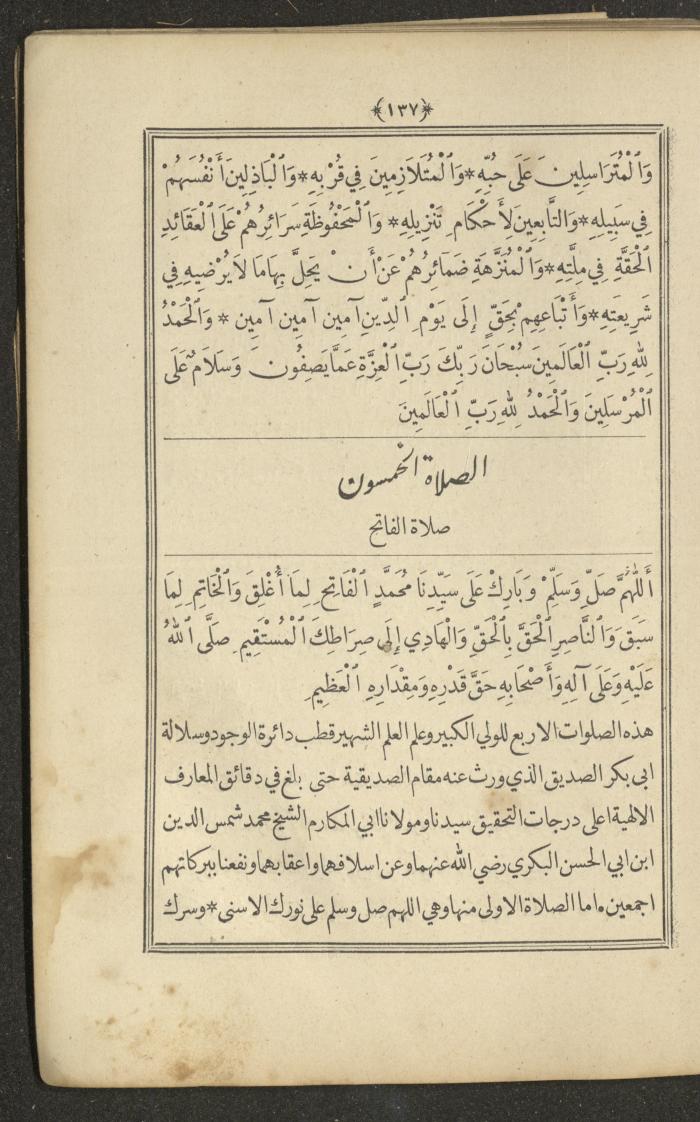 ﴿١٣٧﴾
وَٱلْمُتَرَاسِلِينَ عَلَى حُبِّهِ * وَٱلْمُتَلَازِمِينَ فِي قُرْبِهِ * وَٱلْبَاذِلِينَ أَنْفُسَهُمْ
فِي سَبِيلِهِ * وَالتَّابِعِينَ لِأَحْكَامِ تَنْزِيلِهِ * وَٱلْمَحْفُوظَةِ سَرَائِرُهُمْ عَلَى ٱلْعَقَائِدِ
ٱلْحَقَّةِ فِي مِلَّتِهِ * وَٱلْمُنَزَّهَةِ ضَمَائِرُهُمْ عَنْ أَنْ يَحِلَّ بِهَا مَا لَا يُرْضِيهِ فِي
شَرِيعَتِهِ * وَأَتْبَاعِهِمْ بِحَقٍّ إِلَى يَوْمِ ٱلدِّينِ آمِين آمِين آمِين * وَٱلْحَمْدُ
لِلهِ رَبِّ ٱلْعَالَمِينَ سُبْحَانَ رَبِّكَ رَبِّ ٱلْعِزَّةِ عَمَّا يَصِفُونَ وَسَلَامٌ عَلَى
ٱلْمُرْسَلِينَ وَٱلْحَمْدُ لِلهِ رَبِّ ٱلْعَالَمِينَ
الصلاة الخمسون
صلاة الفاتح
أَللّٰهُمَّ صَلِّ وَسَلِّمْ وَبَارِكْ عَلَى سَيِّدِنَا مُحَمَّدٍ ٱلْفَاتِحِ لِمَا أُغْلِقَ وَٱلْخَاتِمِ لِمَا
سَبَقَ وَٱلنَّاصِرِ ٱلْحَقَّ بِٱلْحَقِّ وَالْهَادِي إِلَى صِرَاطِكَ ٱلْمُسْتَقِيمِ صَلَّى ٱللهُ
عَلَيْهِ وَعَلَى آلِهِ وَأَصْحَابِهِ حَقَّ قَدْرِهِ وَمِقْدَارِهِ ٱلْعَظِيمِ
هذه الصلوات الاربع للولي الكبير وعلم العلم الشهير قطب دائرة الوجود وسلالة
ابي بكر الصديق الذي ورث عنه مقام الصديقية حتى بلغ في دقائق المعارف
الالهية اعلى درجات التحقيق سيدنا ومولانا ابي المكارم الشيخ محمد شمس الدين
ابن ابي الحسن البكري رضي الله عنهما وعن اسلافهما واعقابهما ونفعنا ببركاتهم
اجمعين . اما الصلاة الاولى منها وهي اللهم صل وسلم على نورك الاسنى * وسرك